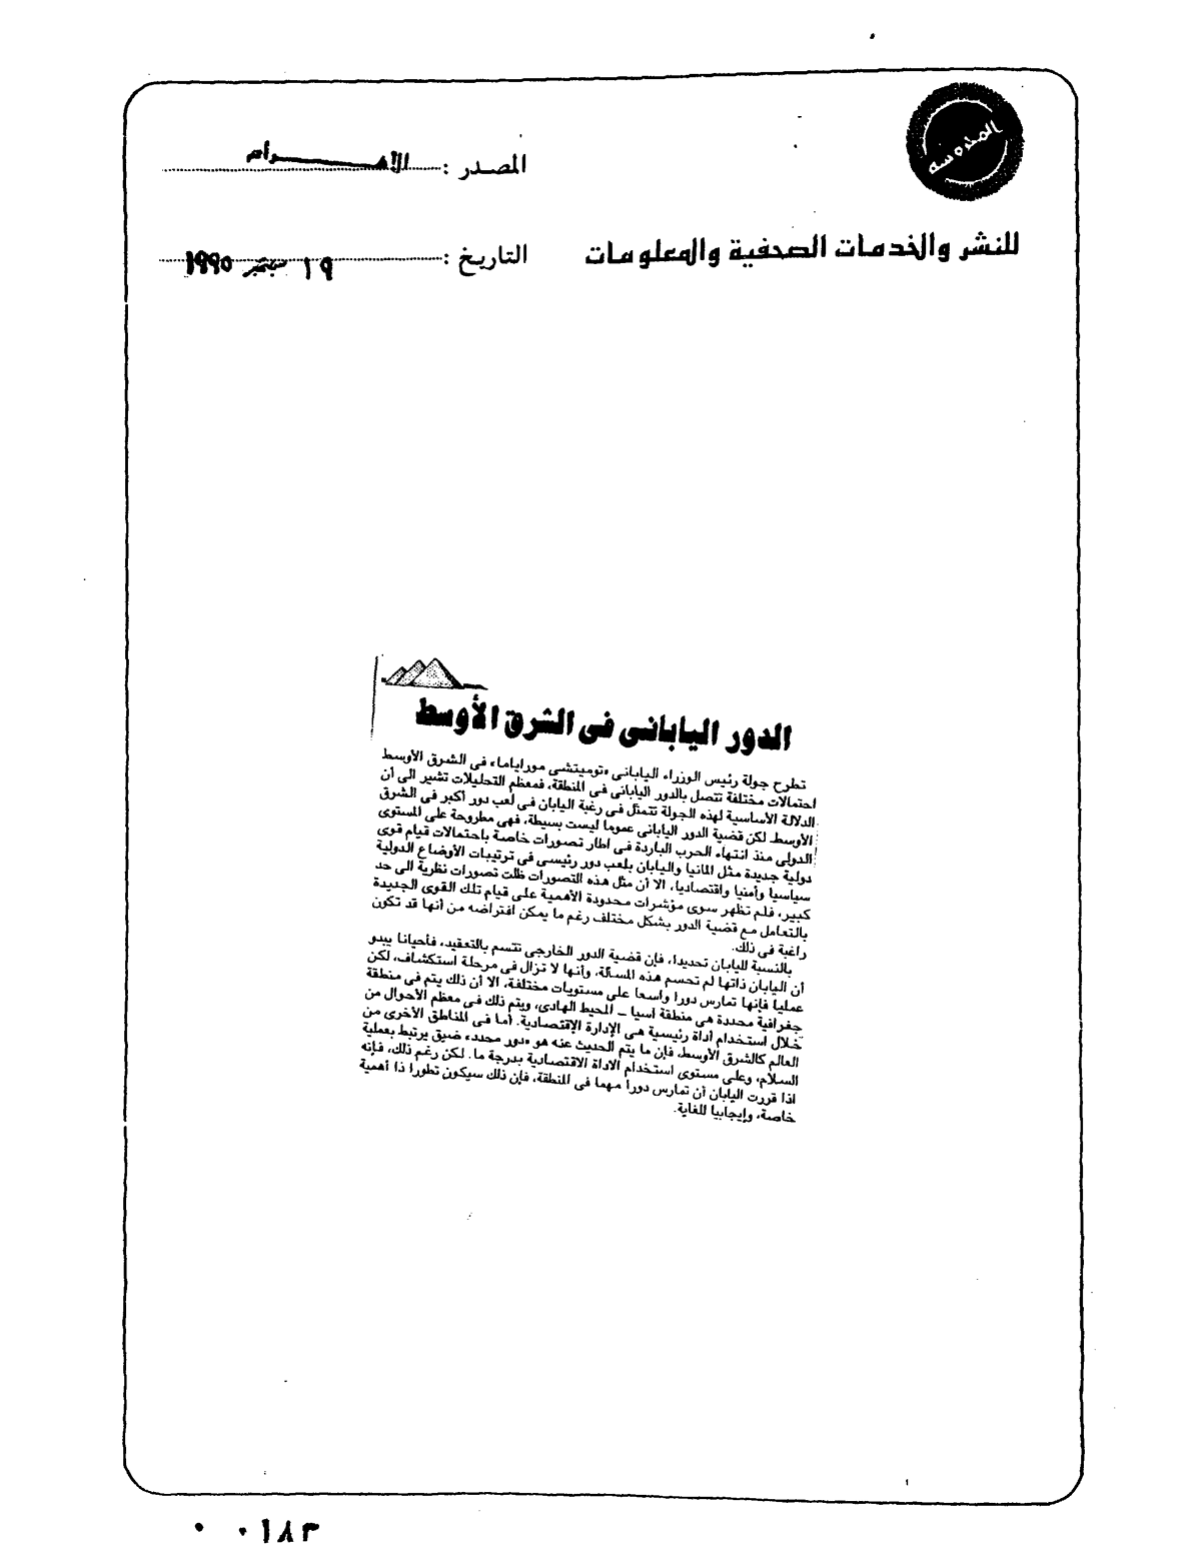 المدوسة
المصدر : الأهرام
للنشر والخدمات الصحفية والمعلومات
التاريخ : ١٩ سبتمبر ١٩٩٥
الدور اليابانى فى الشرق الأوسط
تطرح جولة رئيس الوزراء اليابانى «توميتشى موراياما» فى الشرق الأوسط
احتمالات مختلفة تتصل بالدور اليابانى فى المنطقة، فمعظم التحليلات تشير الى أن
الدلالة الأساسية لهذه الجولة تتمثل فى رغبة اليابان فى لعب دور اكبر فى الشرق
الأوسط. لكن قضية الدور اليابانى عموما ليست بسيطة، فهى مطروحة على المستوى
الدولى منذ انتهاء الحرب الباردة فى اطار تصورات خاصة باحتمالات قيام قوى
دولية جديدة مثل المانيا واليابان بلعب دور رئيسى فى ترتيبات الأوضاع الدولية
سياسيا وأمنيا واقتصاديا، الا أن مثل هذه التصورات ظلت تصورات نظرية الى حد
كبير، فلم تظهر سوى مؤشرات محدودة الأهمية على قيام تلك القوى الجديدة
بالتعامل مع قضية الدور بشكل مختلف رغم ما يمكن افتراضه من أنها قد تكون
راغبة فى ذلك.
بالنسبة لليابان تحديدا، فإن قضية الدور الخارجى تتسم بالتعقيد، فأحيانا يبدو
أن اليابان ذاتها لم تحسم هذه المسألة، وأنها لا تزال فى مرحلة استكشاف، لكن
عمليا فإنها تمارس دورا واسعا على مستويات مختلفة، الا أن ذلك يتم فى منطقة
جغرافية محددة هى منطقة اسيا – المحيط الهادى، ويتم ذلك فى معظم الأحوال من
خلال استخدام أداة رئيسية هى الإدارة الإقتصادية. أما فى المناطق الأخرى من
العالم كالشرق الأوسط، فإن ما يتم الحديث عنه هو «دور محدد» ضيق يرتبط بعملية
السلام، وعلى مستوى استخدام الاداة الاقتصادية بدرجة ما. لكن رغم ذلك، فإنه
اذا قررت اليابان أن تمارس دورا مهما فى المنطقة، فإن ذلك سيكون تطورا ذا أهمية
خاصة، وإيجابيا للغاية.
٠٠١٨٣